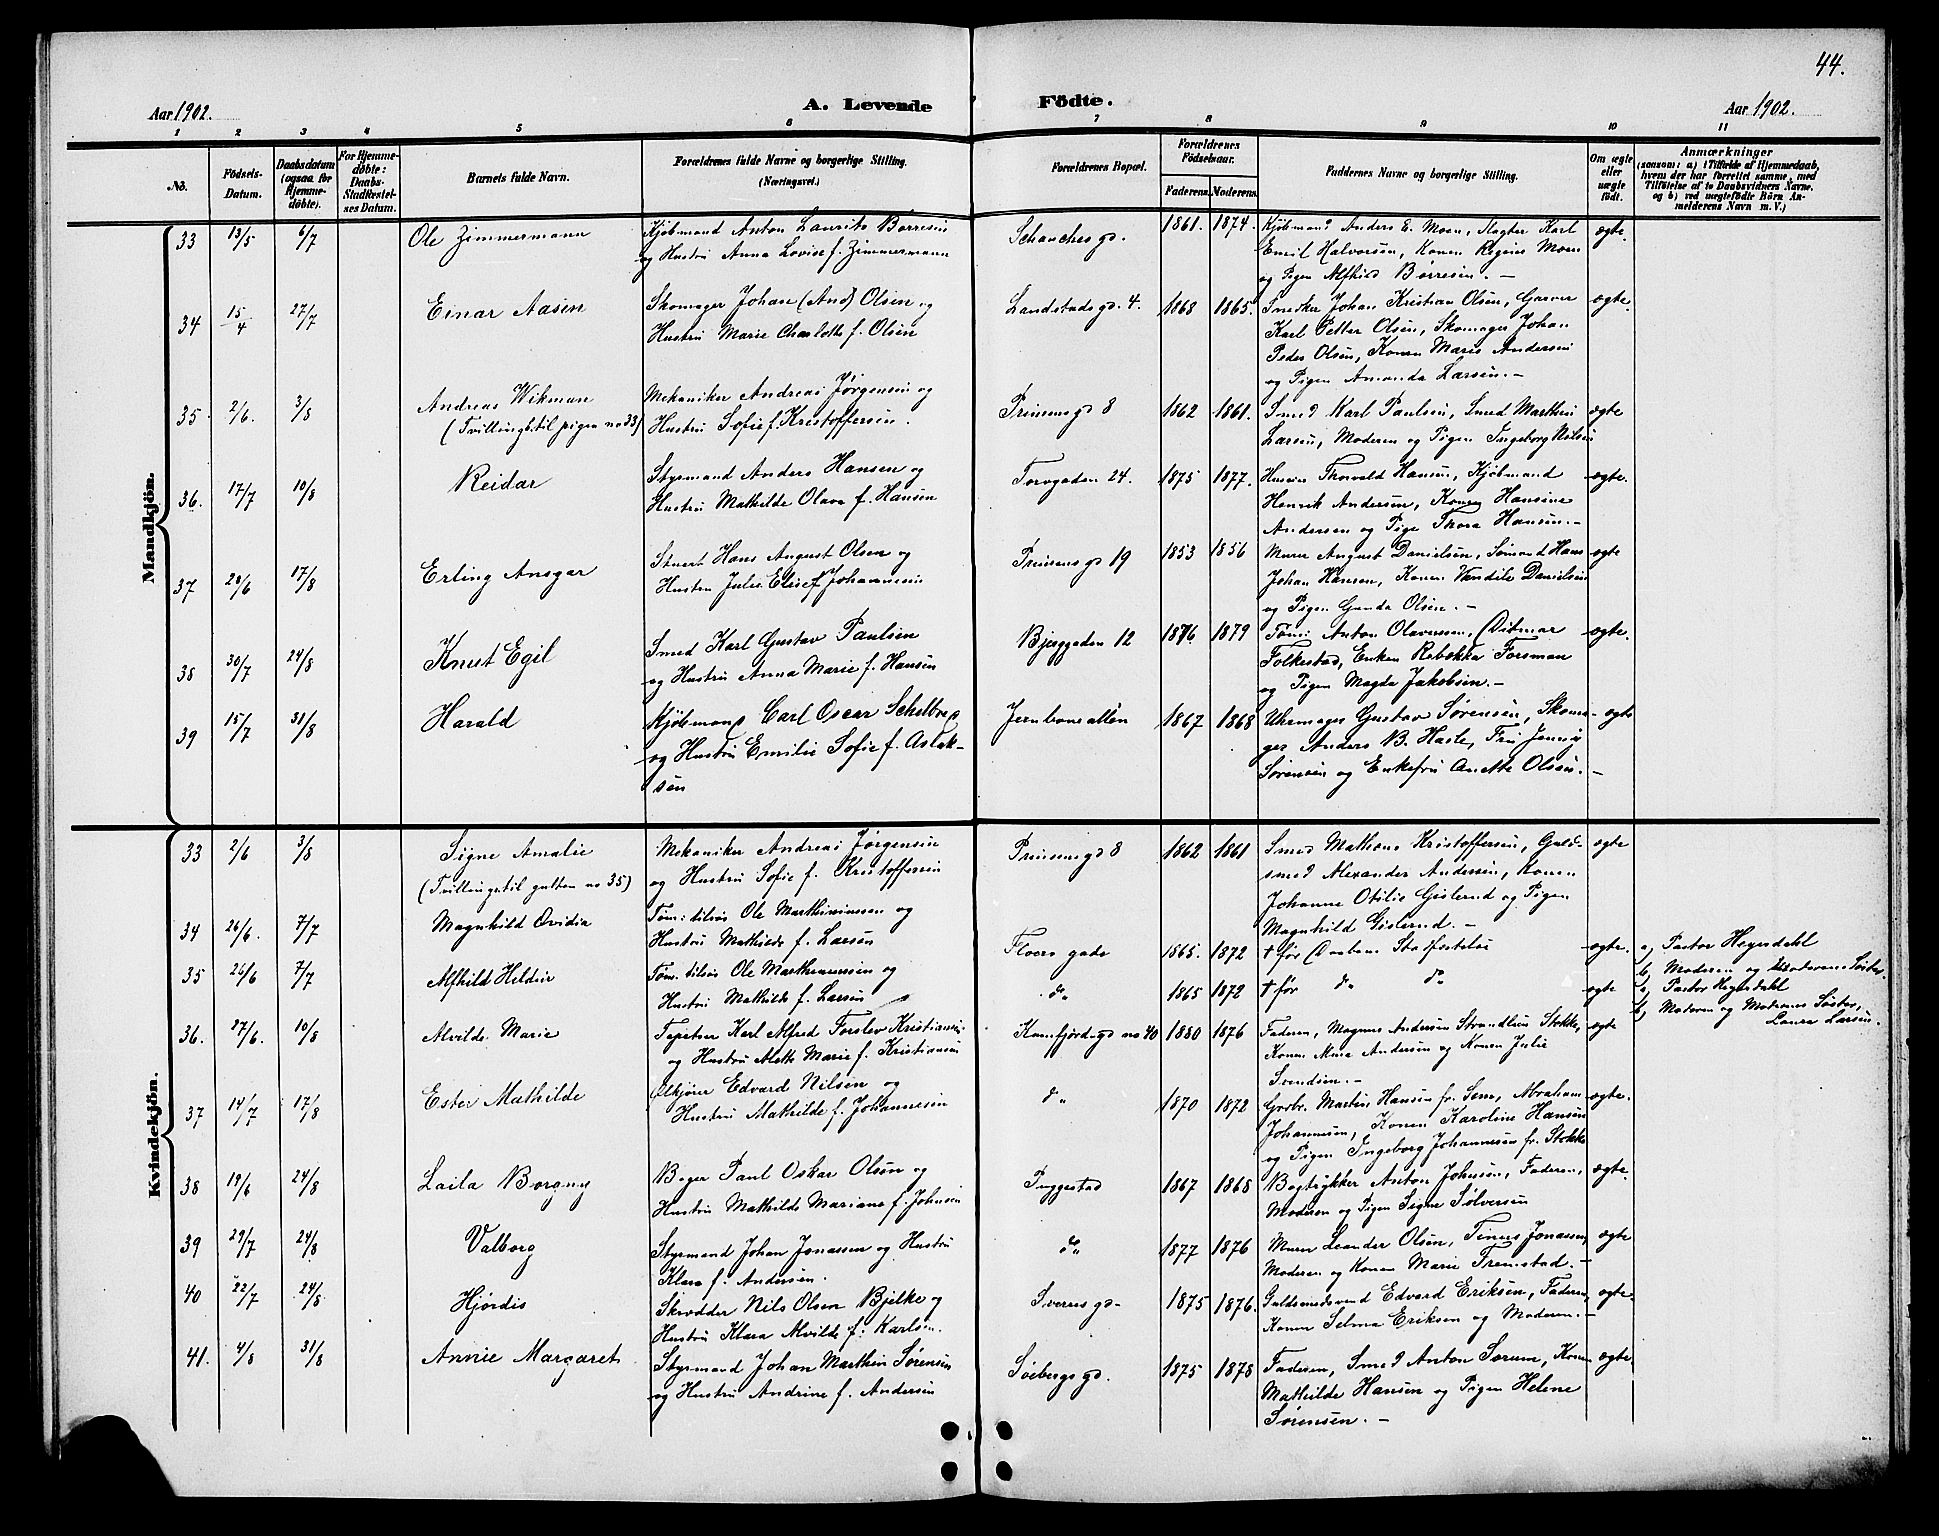 44.
Aar 1902.
A. Levende Födte.
Aar 1902.
1 2 3 4 5 6 7 8 9 10 11
No.
Födsels-Datum.
Daabsdatum (ogsaa for Hjemmedöbte).
For Hjemmedöbte: Daabs-Stadfæstelses Datum.
Barnets fulde Navn.
Forældrenes fulde Navne og borgerlige Stilling. (Næringsvei.)
Forældrenes Bopæl.
Forældrenes Födselsaar.
Faderens. Moderens.
Faddernes Navne og borgerlige Stilling.
Om ægte eller uægte födt.
Anmærkninger
(saasom: a) i Tilfælde af Hjemmedaab, hvem der har forrettet samme, med Tilföielse af to Daabsvidners Navne, og b) ved uægtefödte Börn Anmelderens Navn m. V.)
Mandkjön.
33 13/5 6/7 Ole Zimmermann
Kjøbmand Anton Laurits Børresen
og Hustru Anna Lovise f. Zimmermann
Schanchesgd. 1861. 1874.
Kjøbmand Anders E. Moen, Slagter Karl
Emil Halvorsen, Konen Regine Moen
og Pigen Alfhild Børresen. —
ægte.
34 15/4 27/7 Einar Aasen
Skomager Johan (And) Olsen og
Hustru Marie Charlotte f. Olsen
Landstadsgd. 4. 1868 1865.
Snedker Johan Kristian Olsen, Garver
Karl Petter Olsen, Skomager Johan
Peder Olsen, Konen Marie Andersen
og Pigen Amanda Larsen. —
ægte.
35 2/6. 3/8 Andreas Wikman
(Tvillingb. til pigen no 33)
Mekaniker Andreas Jørgensen og
Hustru Sofie f. Kristoffersen.
Prinsensgd 8 1862 1861.
Smed Karl Paulsen, Smed Marthin
Larsen, Moderen og Pigen Ingeborg Nilsen
ægte
36. 17/7 10/8 Reidar
Styrmand Anders Hansen og
Hustru Mathilde Olava f. Hansen
Torvgaden 24. 1875 1877.
Thorvald Hansen, Kjøbmand
Henrik Andersen, Konen Hansine
Andersen og Pige Thora Hansen. —
ægte.
37 28/6 17/8 Erling Ansgar
Stuert Hans August Olsen og
Hustru Julie Elise f. Johannesen
Prinsensgd 19 1853 1856
Murer August Danielsen, Sømand Hans
Johan Hansen, Konen Vendile Danielsen
og Pigen Gunda Olsen. —
ægte
38 30/7 24/8 Knut Egil
Smed Karl Gustav Paulsen
og Hustru Anna Marie f. Hansen
Bjerggaden 12 1876 1879
Tømr. Anton Olavessen, Ditmar
Folkestad, Enken Rebekka Forsman
og Pigen Magda Jakobsen. —
ægte.
39 15/7 31/8 Harald
Kjøbmand Carl Oscar Schelbred
og Hustru Emilie Sofie f. Aslak-
sen
Jernbanealleen 1867 1868
Uhrmager Gustav Sørensen, Skoma-
ger Anders B. Hasle, Fru Jenny
Sørensen og Enkefru Anette Olsen. —
ægte
Kvindekjön.
33 2/6 3/8 Signe Amalie
(Tvillingb. til gutten no 35)
Mekaniker Andreas Jørgensen
og Hustru Sofie f. Kristoffersen
Prinsensgd 8 1862 1861
Smed Mathias Kristoffersen, Guld-
smed Alexander Andersen, Konen
Johanne Otilie Gislerud og Pigen
Magnhild Gislerud. —
ægte
34 26/6. 7/7 Magnhild Ovidia
Tøm: tilvis Ole Marthiniussen og
Hustru Mathilde f. Larsen
Floers gade 1865. 1872
† før Daabens Stadfestelse
ægte. a) Pastor Heyerdahl
b) Moderen og Moderens Søster,
35 26/6 7/7 Alfhild Heldine
Tøm. tilvis Ole Marthinussen og
Hustru Mathilde f. Larsen
do 1865 1872 † før do do
ægte a) Pastor Heyerdahl
b) Moderen og Moderens Søster,
Laura Larsen.
36. 27/6. 10/8 Alvilde Marie
Tapetser Karl Alfred Forslev Kristians.
og Hustru Alette Marie f. Kristiansen
Kamfjordsgd no 40 1880 1876
Faderen, Magnus Andersen Strandlien Stokke,
Konen Mina Andersen og Konen Julie
Svendsen. —
ægte
37 14/7 17/8 Ester Mathilde
Ølkjører Edvard Nilsen og
Hustru Mathilde f. Johannesen
do 1870 1872
Gbr. Martin Hansen fr. Sem, Abraham
Johannesen, Konen Karoline Hansen
og Pigen Ingeborg Johannesen fr. Stokke
ægte.
38 19/6 24/8 Laila Borgny
Bager Paul Oskar Olsen og
Hustru Mathilde Mariane f. Johnsen
Puggestad 1867 1868
Bogtrykker Anton Johnsen, Faderen,
Moderen og Pigen Signe Sølversen
ægte.
39 29/7 24/8 Valborg
Styrmand Johan Jonassen og Hustru
Klara f. Andersen.
do 1877 1876
Murer Leander Olsen, Tinus Jonassen,
Moderen og Konen Marie Fremstad. —
ægte
40 22/7 24/8 Hjørdis
Skrædder Nils Olsen Bjelke og
Hustru Klara Alvilde f. Karlsen.
Sverresgd. 1875 1876.
Guldsmedsvend Edvard Eriksen, Faderen,
Konen Selma Eriksen og Moderen. —
ægte.
41. 4/8 31/8 Annie Margaret
Styrmand Johan Marthin Sørensen
og Hustru Andrine f. Andersen
Søebergsgd. 1875 1878
Faderen, Smed Anton Sørum, Konen
Mathilde Hansen og Pigen Helene
Sørensen. —
ægte